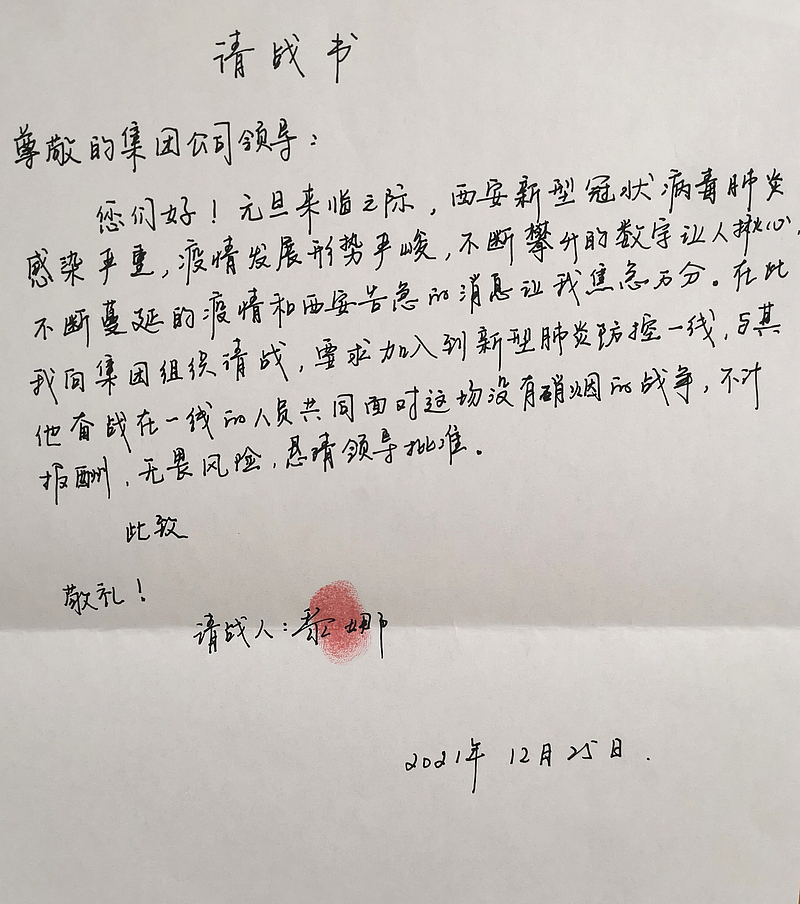 请战书
尊敬的集团公司领导：
您们好！元旦来临之际，西安新型冠状病毒肺炎
感染严重，疫情发展形势严峻，不断攀升的数字让人揪心，
不断蔓延的疫情和西安告急的消息让我焦急万分。在此
我向集团组织请战，要求加入到新型肺炎防控一线，与其
他奋战在一线的人员共同面对这场没有硝烟的战争，不计
报酬，无畏风险，恳请领导批准。
此致
敬礼！
请战人：娜
2021年12月25日.